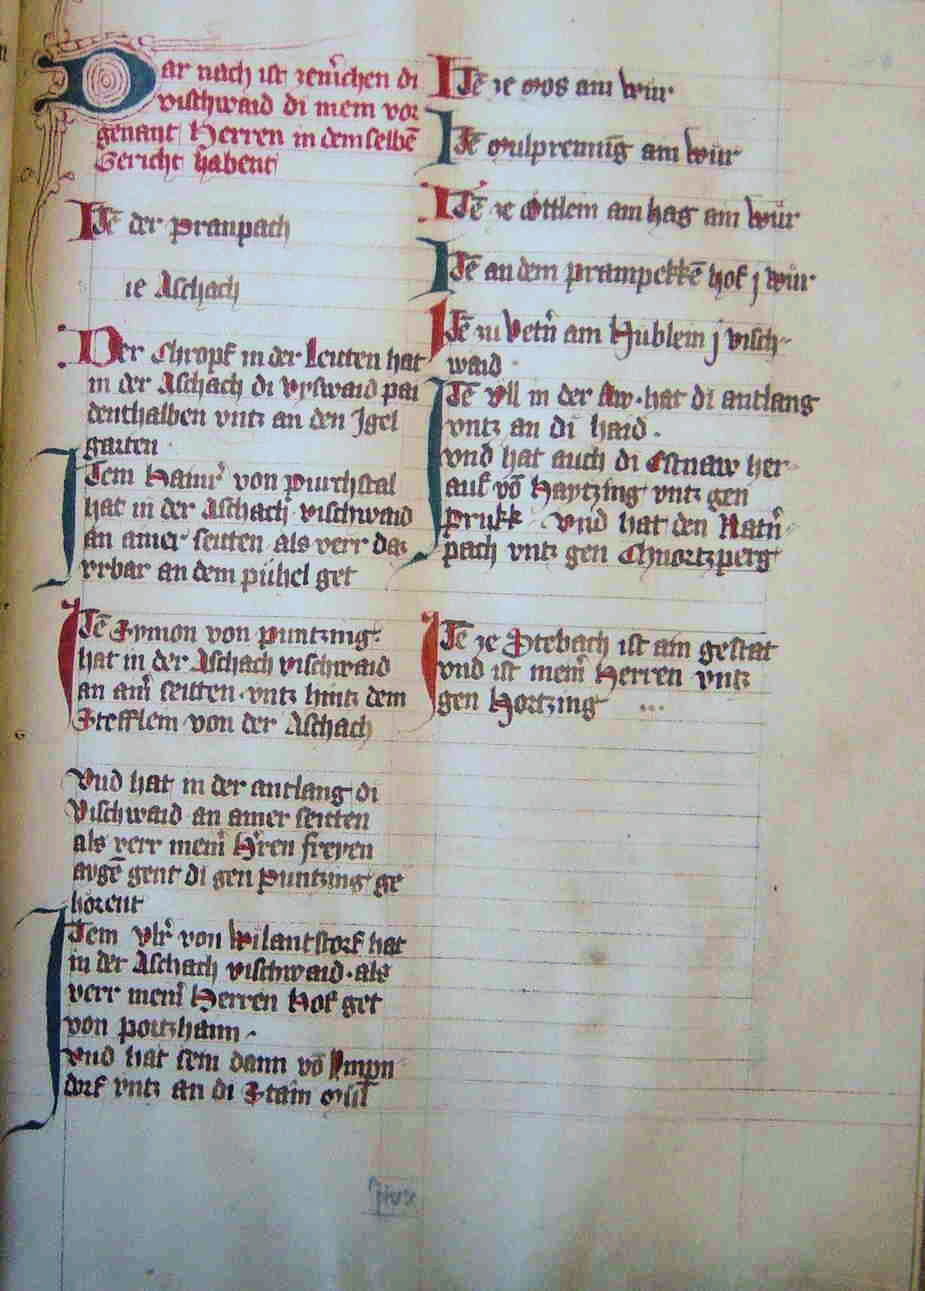 Dar nach ist zem̄chen di
vischwaid di mein vor
genant Herren in dem selbē
Gericht habent
Itē der pranpach
ze Aschach
Der Chropf in der Leuten hat
in der Aschach di vyswaid pai
denthalben vntz an den Igel
garten
Item Hainr̄ von purchstal
hat in der Aschach vischwaid
an ainer seuten als verr daz
vrbar an dem pühel get
Itē Symon von puntzing
hat in der Aschach vischwaid
an ain̄ seitten vntz hintz dem
Stefflein von der Aschach
Vnd hat in der antlang di
Vischwaid an ainer seuten
als verr mein̄ H̄ren freyen
aygē gent di gen puntzing ge
hörent
Item Vlr̄ von Wilantstorf hat
in der Aschach vischwaid als
verr mein̄ Herren Hof get
von portzhaim
vnd hat sein dann vō
dorf vntz an di Stain
Itē ze Mos ain Wür
Itē Mulprennīg ain Wür
Itē ze Ottlein am hag ain Wür
Itē an dem prampekkē hof j Wür
Itē zu Vetn̄ am Hublein j visch-
waid
Itē Vll in der Aw hat di antlang
vntz an di haid
vnd hat auch di Estnaw her
auf vō Haytzing vntz gen
prukk Vnd hat den Natn̄
pach vntz gen Chnortzperg
Itē ze Stebach ist ain gestat
vnd ist mein̄ Herren vntz
gen Hortzing